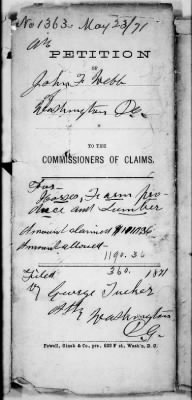 No 1363 May 23/71
PETITION
OF
John F Webb
Washington
TO THE
COMMISSIONERS OF CLAIMS.
For
Horses, Farm pro
duce and Lumber
Amount claimed
Amount allowed
1190.36
Filed 360. 1871
by George Tucker
Atty Washington
Powell, Ginck & Co., prs, 632 F st., Wash'n, D.C.